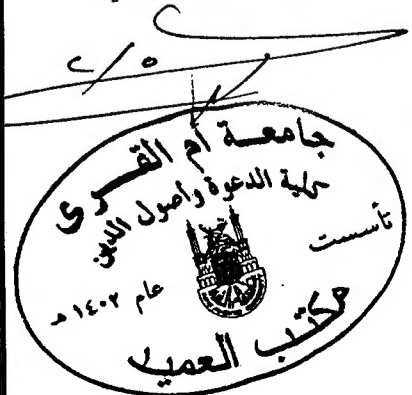 ٥/٢
جامعة أم القرى
كلية الدعوة وأصول الدين
تأسست
عام ١٤٠٢ هـ
مكتب العميد